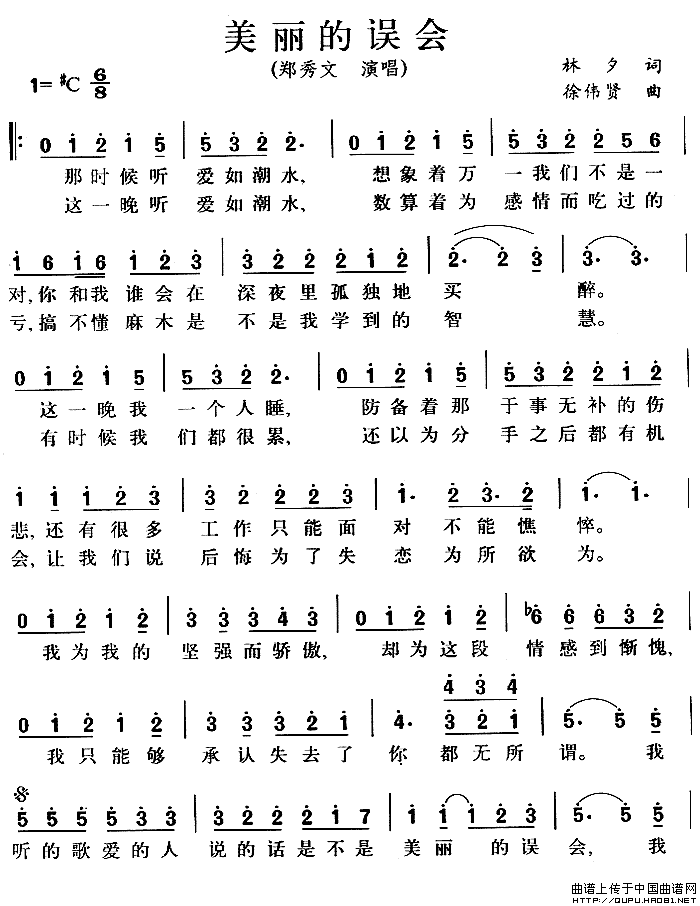 美丽的误会
(郑秀文 演唱)
1=#C 6/8
林夕 词
徐伟贤 曲
0 1 2 1 5 | 5 3 2 2· | 0 1 2 1 5 | 5 3 2 2 5 6
那时候听 爱如潮水, 想象着万 一我们不是一
这一晚听 爱如潮水, 数算着为 感情而吃过的
1 6 1 6 1 2 3 | 3 2 2 2 1 2 | 2· 2 3 | 3· 3·
对,你和我谁会在 深夜里孤独地 买 醉。
亏,搞不懂麻木是 不是我学到的 智 慧。
0 1 2 1 5 | 5 3 2 2· | 0 1 2 1 5 | 5 3 2 2 1 2
这一晚我 一个人睡, 防备着那 于事无补的伤
有时候我 们都很累, 还以为分 手之后都有机
1 1 1 2 3 | 3 2 2 2 3 | 1· 2 3· 2 | 1· 1·
悲,还有很多 工作只能面 对 不能憔 悴。
会,让我们说 后悔为了失 恋 为所欲 为。
0 1 2 1 2 | 3 3 3 4 3 | 0 1 2 1 2 | b6 6 6 3 2
我为我的 坚强而骄傲, 却为这段 情感到惭愧,
4 3 4
0 1 2 1 2 | 3 3 3 2 1 | 4· 3 2 1 | 5· 5· 5
我只能够 承认失去了 你 都无所 谓。 我
5 5 5 5 3 3 | 2 2 2 2 1 7 | 1 1 1 2 3 | 5· 5 5
听的歌爱的人 说的话是不是 美 丽 的误 会, 我
曲谱上传于中国曲谱网
HTTP://QUPU.HAO81.NET